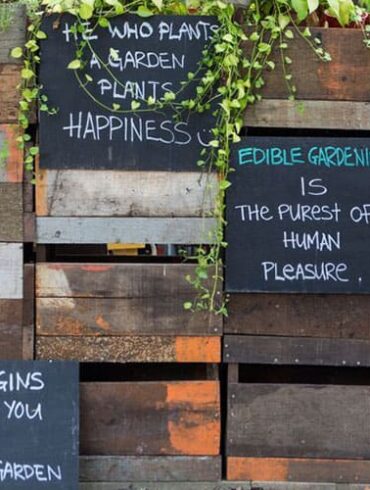 HE WHO PLANTS
A GARDEN
PLANTS
HAPPINESS
EDIBLE GARDENI
IS
THE PUREST OF
HUMAN
PLEASURE.
GINS
YOU
GARDEN